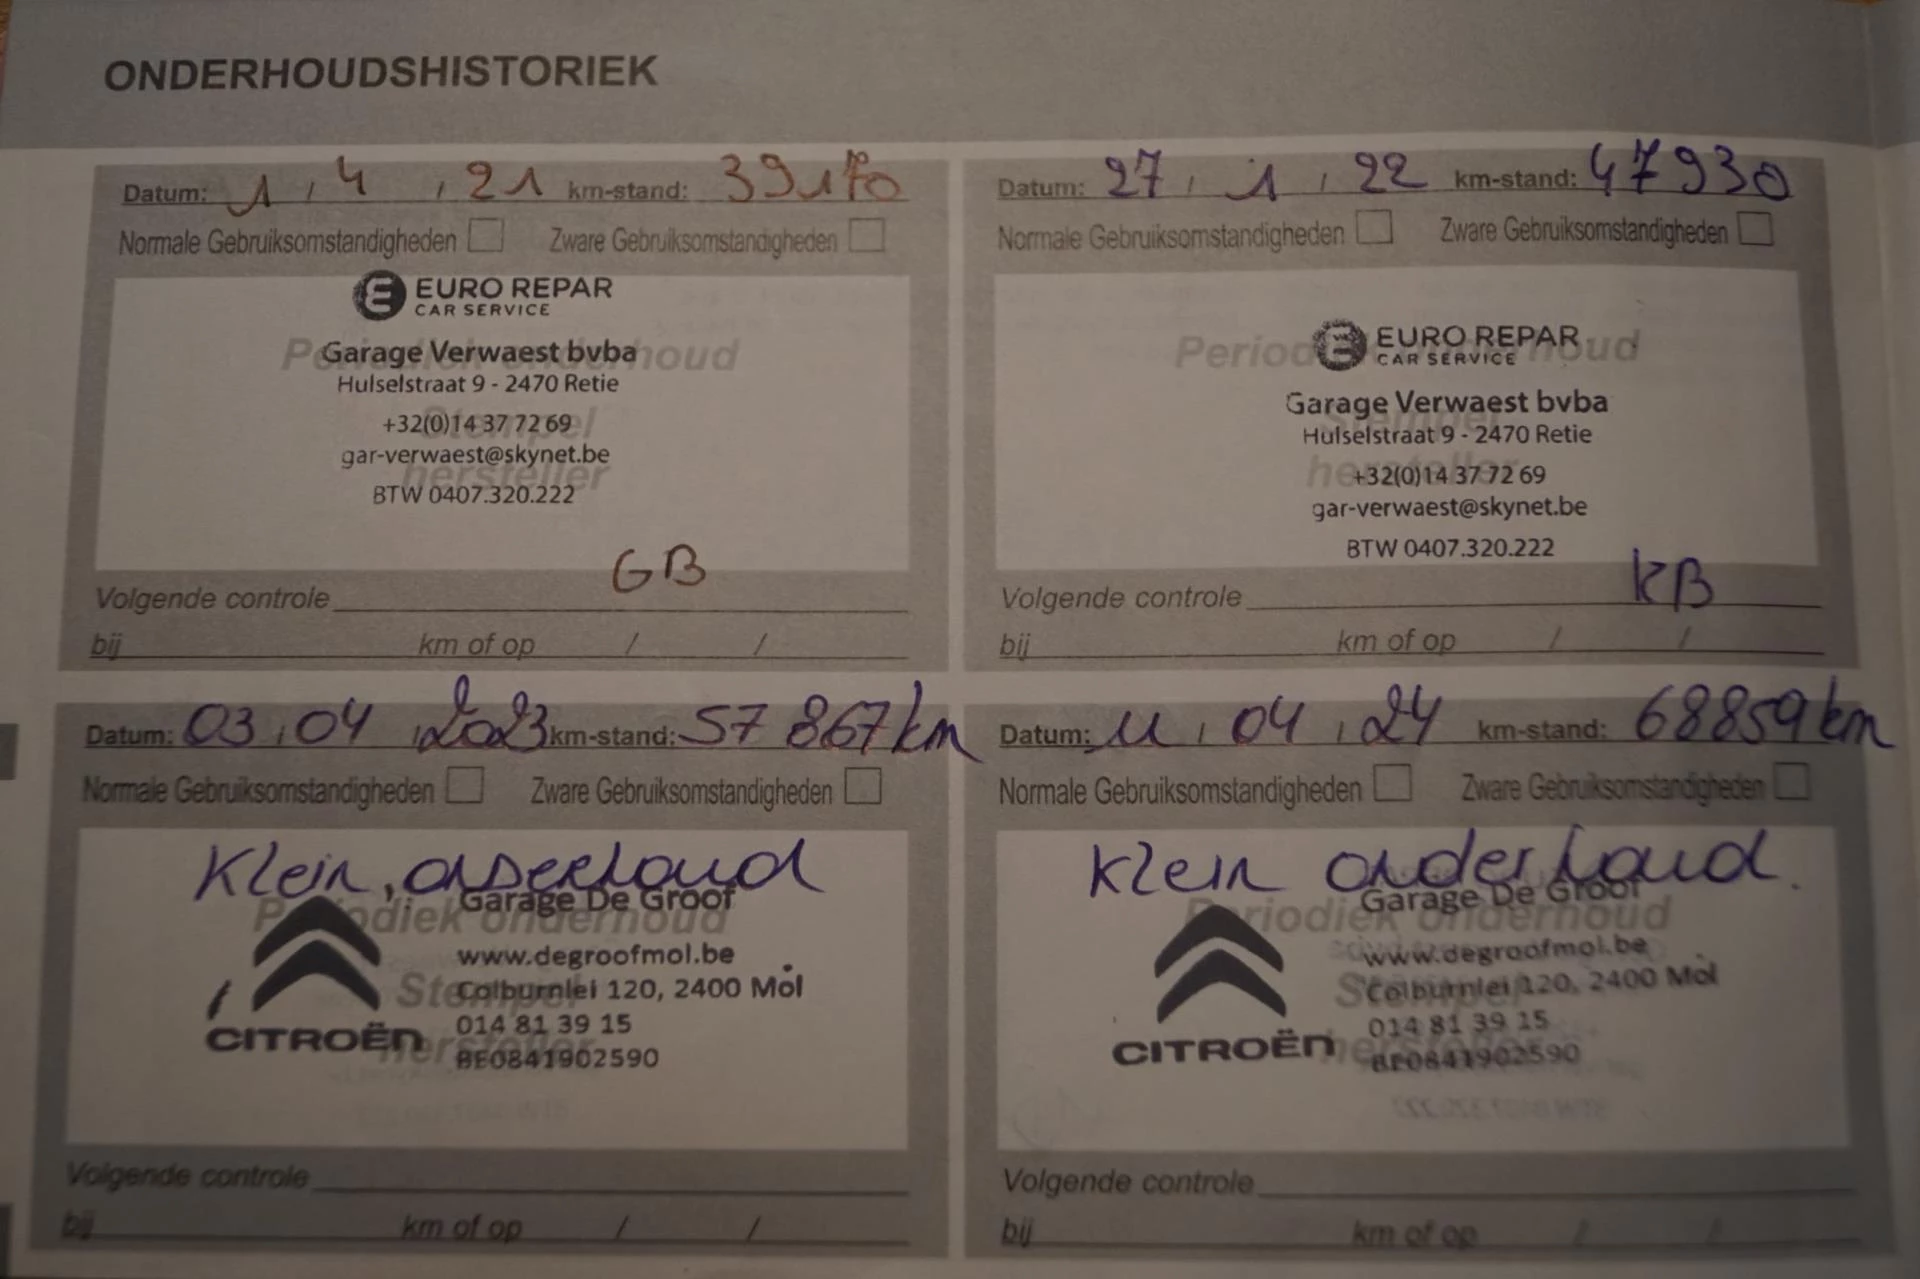 ONDERHOUDSHISTORIEK
Datum: 1 / 4 / 21 km-stand: 39170
Normale Gebruiksomstandigheden Zware Gebruiksomstandigheden
EURO REPAR
CAR SERVICE
Periodiek onderhoud
Garage Verwaest bvba
Hulselstraat 9 - 2470 Retie
Stempel
+32(0)14 37 72 69
gar-verwaest@skynet.be
hersteller
BTW 0407.320.222
GB
Volgende controle
bij km of op / /
Datum: 27 / 1 / 22 km-stand: 47930
Normale Gebruiksomstandigheden Zware Gebruiksomstandigheden
EURO REPAR
CAR SERVICE
Periodiek onderhoud
Garage Verwaest bvba
Stempel
Hulselstraat 9 - 2470 Retie
hersteller
+32(0)14 37 72 69
gar-verwaest@skynet.be
BTW 0407.320.222
KB
Volgende controle
bij km of op / /
Datum: 03 / 04 / 2023 km-stand: 57 867 km
Normale Gebruiksomstandigheden Zware Gebruiksomstandigheden
Klein onderhoud
Garage De Groof
Periodiek onderhoud
www.degroofmol.be
Stempel
Colburnlei 120, 2400 Mol
014 81 39 15
CITROËN
hersteller
BE0841902590
Volgende controle
bij km of op / /
Datum: 11 / 04 / 24 km-stand: 68859 km
Normale Gebruiksomstandigheden Zware Gebruiksomstandigheden
Klein onderhoud.
Garage De Groof
Periodiek onderhoud
www.degroofmol.be
Stempel
Colburnlei 120, 2400 Mol
014 81 39 15
CITROËN
hersteller
BE0841902590
Volgende controle
bij km of op / /